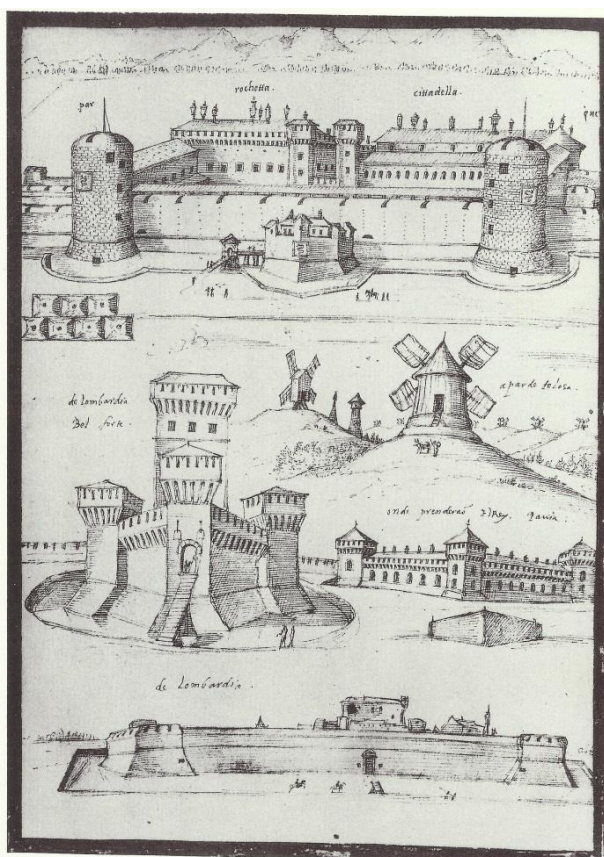 par
rochetta
cittadella.
de lombardia
Bel forte
a par de tolosa.
onde prendereō El Rey. Pavia.
de lombardia.